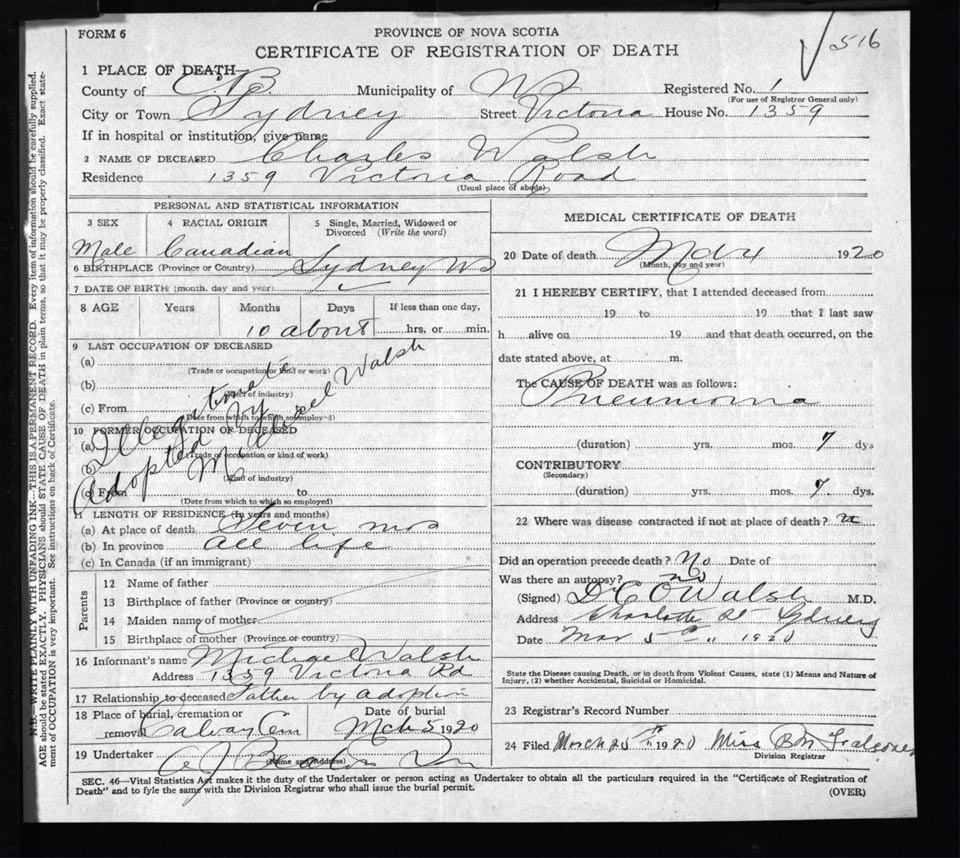 FORM 6
PROVINCE OF NOVA SCOTIA
CERTIFICATE OF REGISTRATION OF DEATH
516
1 PLACE OF DEATH—
County of C.B. Municipality of Registered No. 1
(For use of Registrar General only)
City or Town Sydney Street Victoria House No. 1359
If in hospital or institution, give name
2 NAME OF DECEASED Charles Walsh
Residence 1359 Victoria Road
(Usual place of abode)
PERSONAL AND STATISTICAL INFORMATION
3 SEX 4 RACIAL ORIGIN 5 Single, Married, Widowed or Divorced (Write the word)
Male Canadian
6 BIRTHPLACE (Province or Country) Sydney
7 DATE OF BIRTH (month, day and year)
8 AGE Years Months Days If less than one day,
10 about hrs. or min.
9 LAST OCCUPATION OF DECEASED
(a)
(Trade or occupation or kind or work)
(b)
(Kind of industry)
(c) From
(Date from which to which so employed)
Illegitimate
Adopted by
Michael Walsh
10 FORMER OCCUPATION OF DECEASED
(a)
(Trade or occupation or kind of work)
(b)
(Kind of industry)
(c) From to
(Date from which to which so employed)
11 LENGTH OF RESIDENCE (In years and months)
(a) At place of death Seven mos
(b) In province all life
(c) In Canada (if an immigrant)
Parents
12 Name of father
13 Birthplace of father (Province or country)
14 Maiden name of mother
15 Birthplace of mother (Province or country)
16 Informant's name Michael Walsh
Address 1359 Victoria Rd
17 Relationship to deceased Father by adoption
18 Place of burial, cremation or removal Calvary Cem Date of burial Mch 5 1920
19 Undertaker
(Name and Address)
MEDICAL CERTIFICATE OF DEATH
20 Date of death Mch 4 1920
(Month, day and year)
21 I HEREBY CERTIFY, that I attended deceased from
19 to 19 that I last saw
h alive on 19 and that death occurred, on the
date stated above, at m.
The CAUSE OF DEATH was as follows:
Pneumonia
(duration) yrs. mos. 7 dys
CONTRIBUTORY
(Secondary)
(duration) yrs. mos. 7 dys.
22 Where was disease contracted if not at place of death?
Did an operation precede death? No Date of
Was there an autopsy? no
(Signed) Walsh M.D.
Address Charlotte St Sydney
Date Mar 5th 1920
State the Disease causing Death, or in death from Violent Causes, state (1) Means and Nature of
Injury, (2) whether Accidental, Suicidal or Homicidal.
23 Registrar's Record Number
24 Filed March 25th 1920 Miss
Division Registrar
SEC. 46—Vital Statistics Act makes it the duty of the Undertaker or person acting as Undertaker to obtain all the particulars required in the "Certificate of Registration of
Death" and to fyle the same with the Division Registrar who shall issue the burial permit.
(OVER)
N.B.—WRITE PLAINLY WITH UNFADING INK—THIS IS A PERMANENT RECORD. Every item of information should be carefully supplied.
AGE should be stated EXACTLY. PHYSICIANS should STATE CAUSE OF DEATH in plain terms, so that it may be properly classified. Exact state-
ment of OCCUPATION is very important. See instructions on back of Certificate.